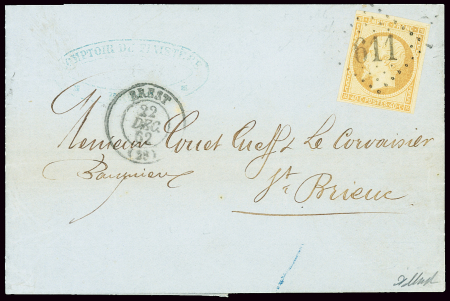 COMPTOIR DU FINISTÈRE
611
BREST
22
DEC.
62
(28)
Monsieur Couet Cueff & Le Corvaisier
Banquiers
St Brieuc